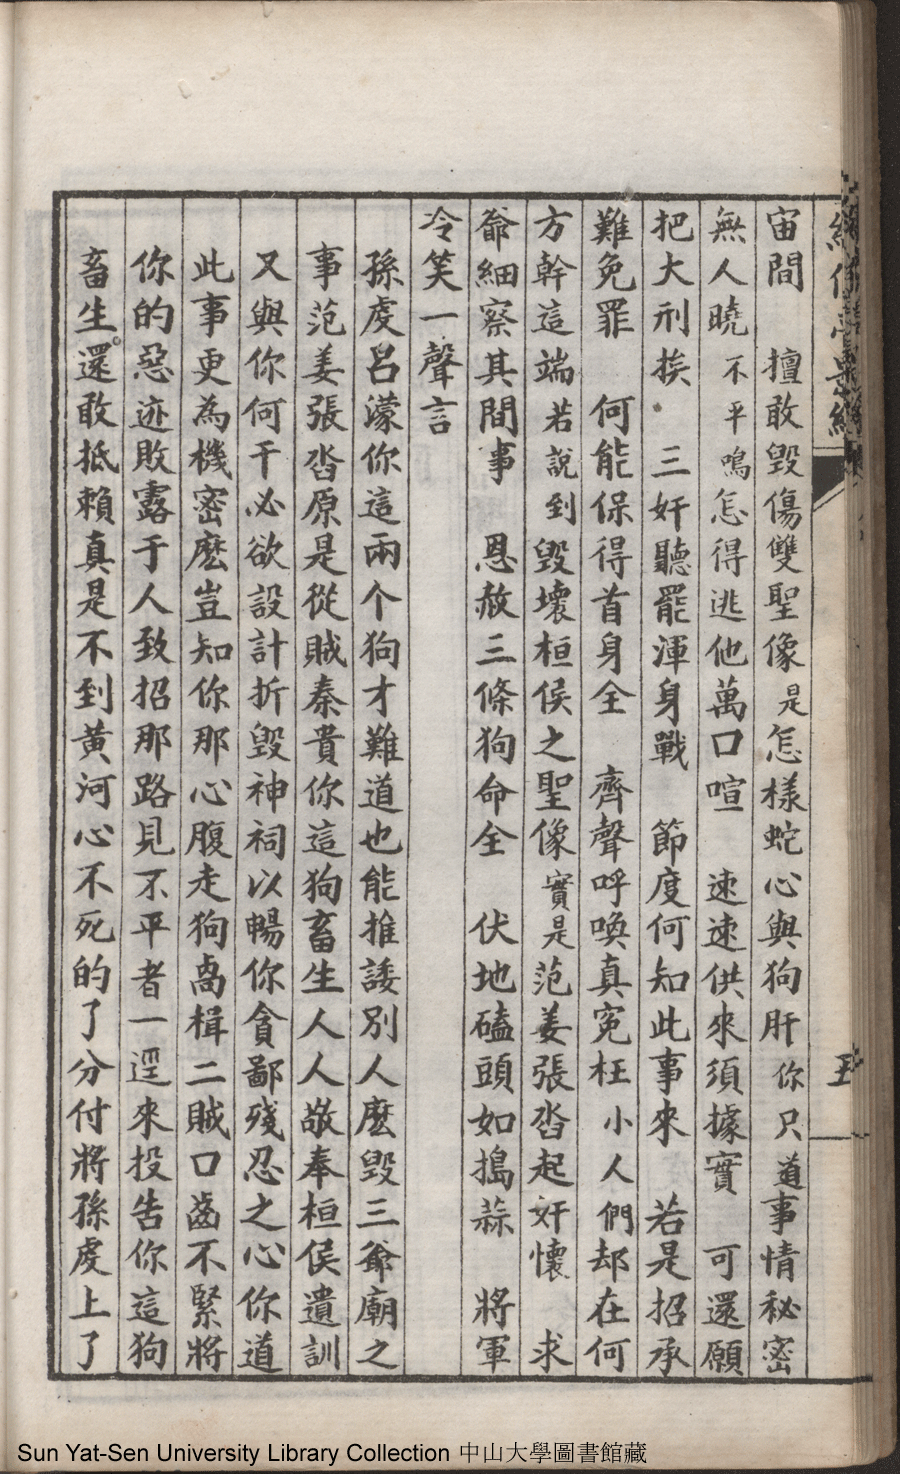 宙間　擅敢毀傷雙聖像是怎樣蛇心與狗肝你只道事情秘密
無人曉不平鳴怎得逃他萬口喧　速速供來須據實　可還願
把大刑挨　三奸聽罷渾身戰　節度何知此事來　若是招承
難免罪　何能保得首身全　齊聲呼喚真冤枉　小人們却在何
方幹這端若說到毀壞桓侯之聖像實是范姜張沓起奸懷　求
爺細察其間事　恩赦三條狗命全　伏地磕頭如搗蒜　將軍
冷笑一聲言
孫虔呂濛你這兩个狗才難道也能推諉別人麽毀三爺廟之
事范姜張沓原是從賊秦貴你這狗畜生人人敬奉桓侯遺訓
又與你何干必欲設計折毀神祠以暢你貪鄙殘忍之心你道
此事更為機密麽豈知你那心腹走狗卨楫二賊口齒不緊將
你的惡迹敗露于人致招那路見不平者一逕來投告你這狗
畜生還敢抵賴真是不到黄河心不死的了分付將孫虔上了
Sun Yat-Sen University Library Collection 中山大學圖書館藏